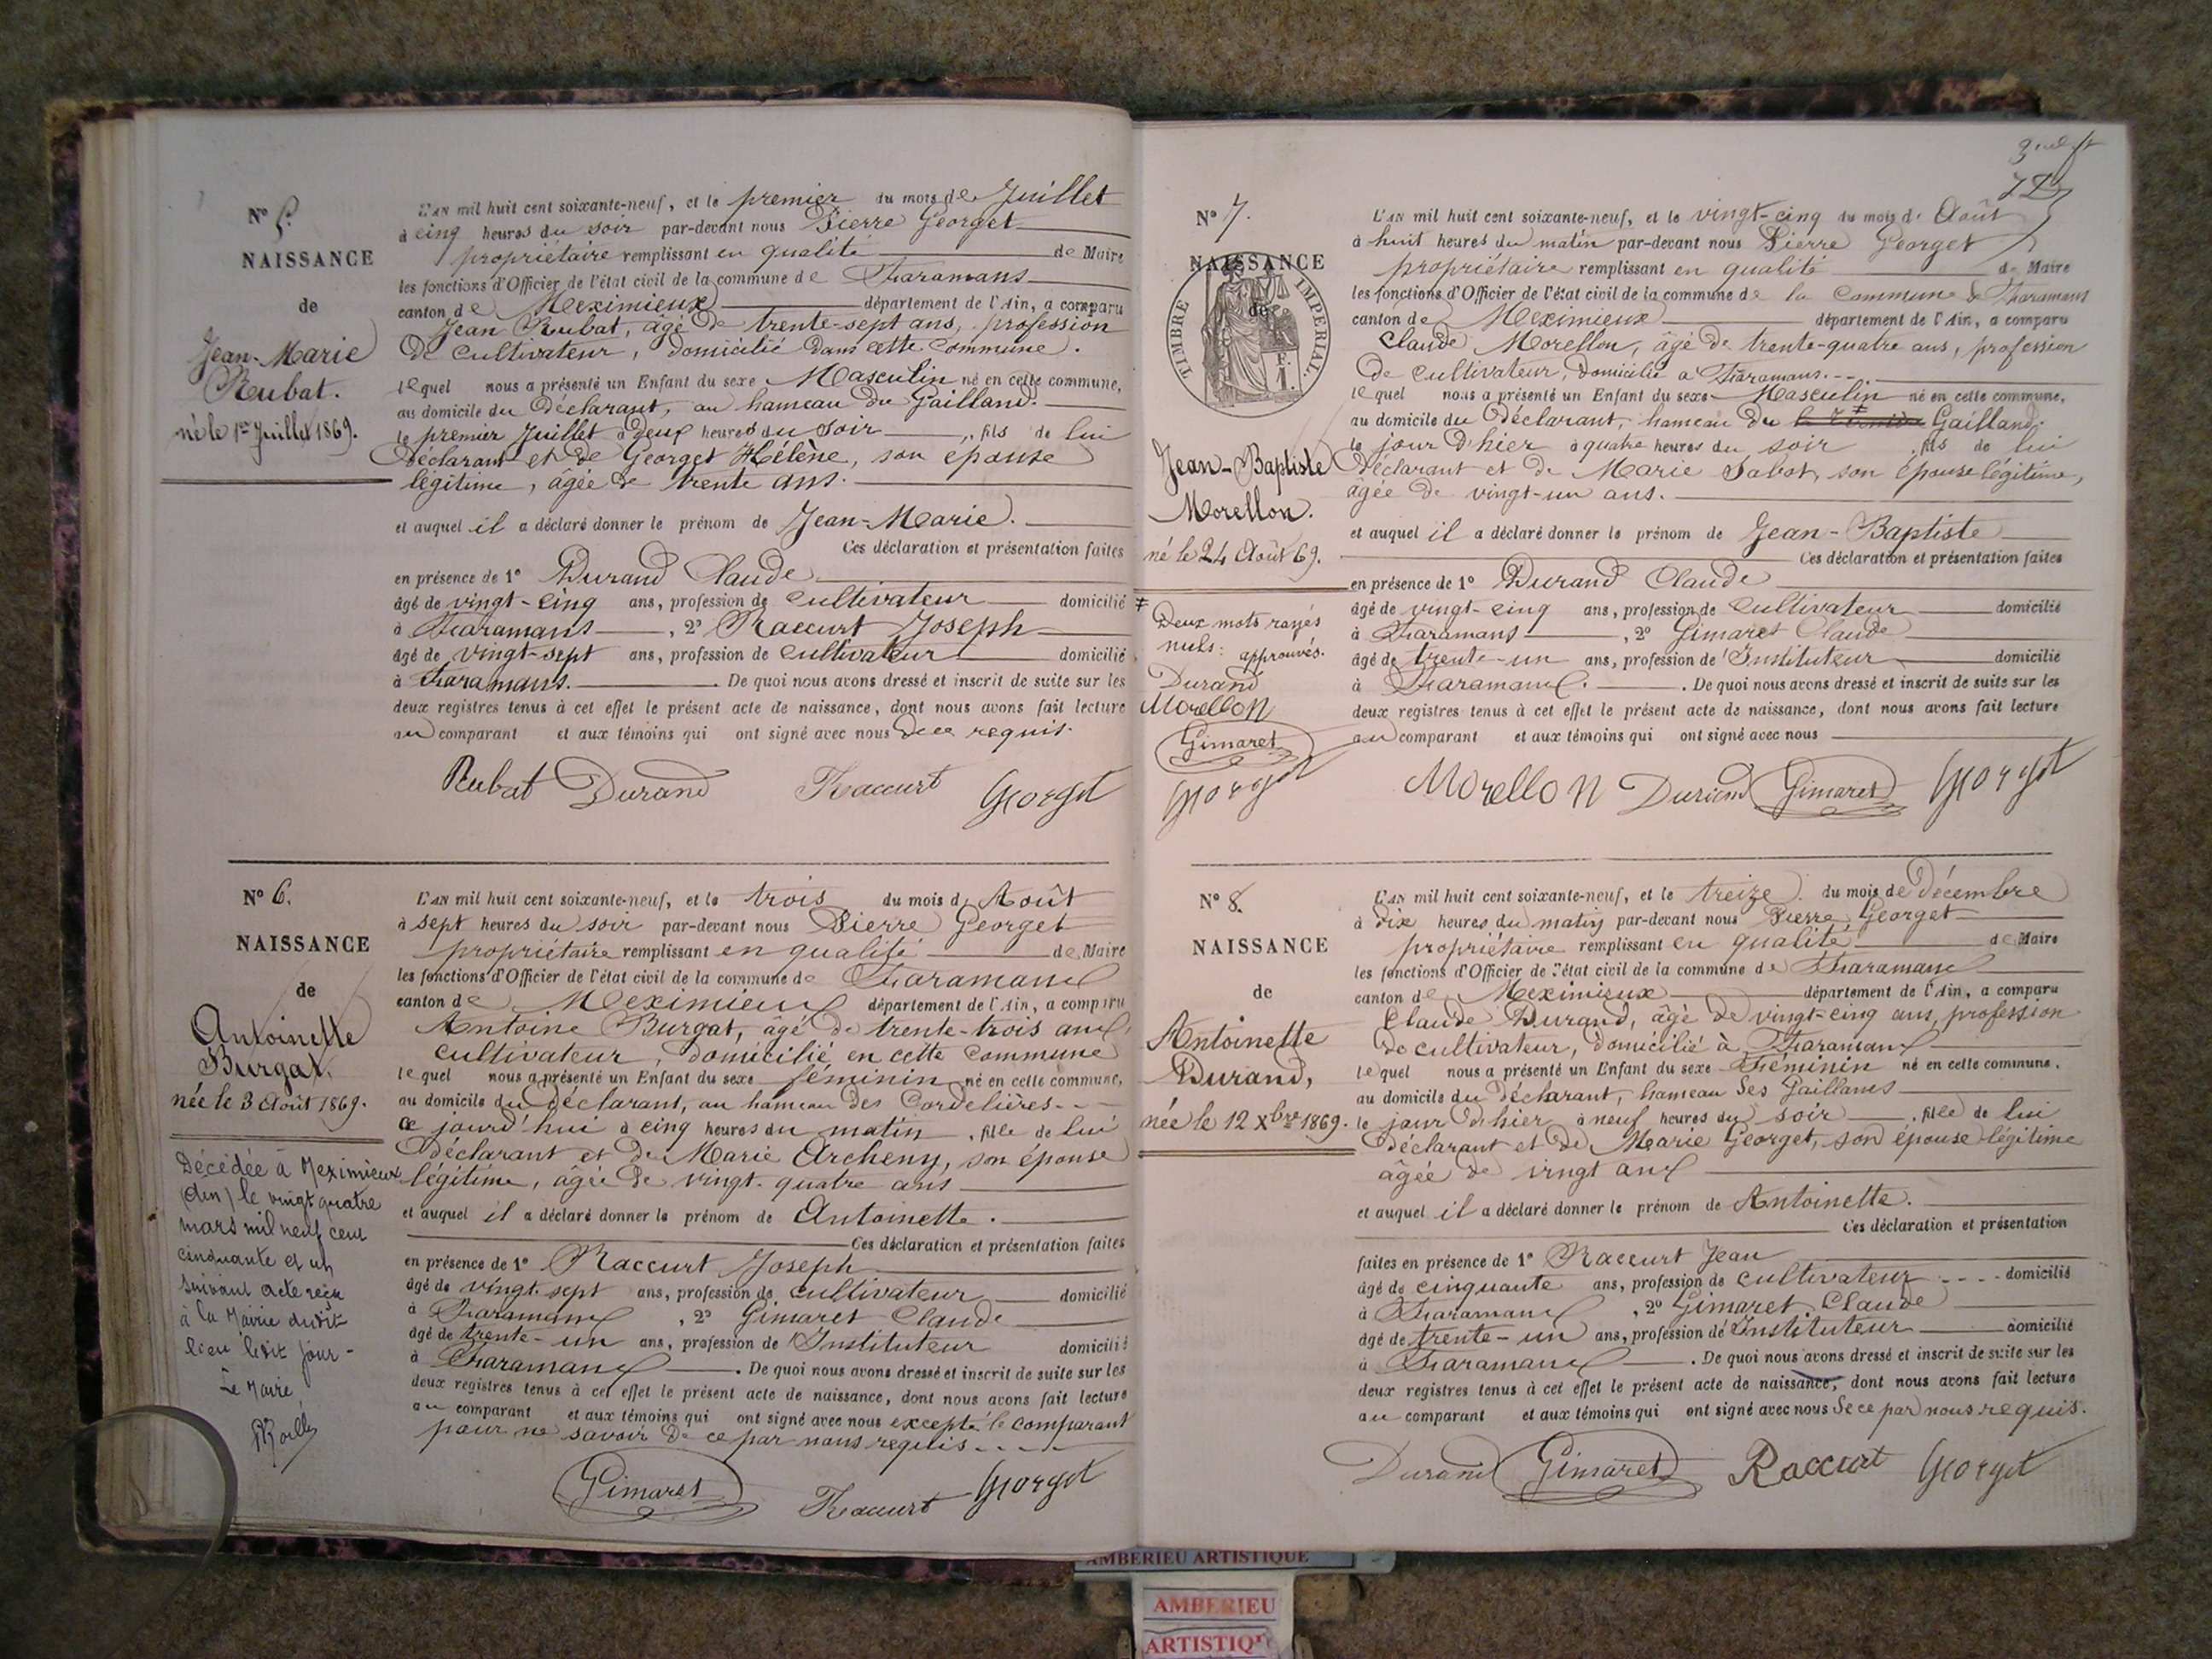 N° 5.
NAISSANCE
de
Jean-Marie
Rubat.
né le 1er Juillet 1869.
L'AN mil huit cent soixante-neuf, et le premier du mois de Juillet
à cinq heures du soir par-devant nous Pierre Georget
propriétaire remplissant en qualité de Maire
les fonctions d'Officier de l'état civil de la commune de Faramans
canton de Meximieux département de l'Ain, a comparu
Jean Rubat, âgé de trente-sept ans, profession
de cultivateur, domicilié dans cette commune.
lequel nous a présenté un Enfant du sexe Masculin né en cette commune,
au domicile du déclarant, au hameau du Gailland.
le premier Juillet à deux heures du soir, fils de lui
déclarant et de Georget Hélène, son épouse
légitime, âgée de trente ans.
et auquel il a déclaré donner le prénom de Jean-Marie.
Ces déclaration et présentation faites
en présence de 1° Durand Claude
âgé de vingt-cinq ans, profession de cultivateur domicilié
à Faramans, 2° Raccurt Joseph
âgé de vingt-sept ans, profession de cultivateur domicilié
à Faramans. De quoi nous avons dressé et inscrit de suite sur les
deux registres tenus à cet effet le présent acte de naissance, dont nous avons fait lecture
au comparant et aux témoins qui ont signé avec nous de ce requis.
Rubat Durand Raccurt Georget
N° 6.
NAISSANCE
de
Antoinette
Burgat.
née le 3 Août 1869.
Décédée à Meximieux
(Ain) le vingt quatre
mars mil neuf cent
cinquante et un
suivant acte reçu
à la Mairie dudit
lieu ledit jour -
Le Maire
L'AN mil huit cent soixante-neuf, et le trois du mois d'Août
à sept heures du soir par-devant nous Pierre Georget
propriétaire remplissant en qualité de Maire
les fonctions d'Officier de l'état civil de la commune de Faramans
canton de Meximieux département de l'Ain, a comparu
Antoine Burgat, âgé de trente-trois ans,
cultivateur, domicilié en cette commune
lequel nous a présenté un Enfant du sexe féminin né en cette commune,
au domicile du déclarant, au hameau des Cordelières
ce jourd'hui à cinq heures du matin, fille de lui
déclarant et de Marie Archeny, son épouse
légitime, âgée de vingt-quatre ans
et auquel il a déclaré donner le prénom de Antoinette.
Ces déclaration et présentation faites
en présence de 1° Raccurt Joseph
âgé de vingt-sept ans, profession de cultivateur domicilié
à Faramans, 2° Gimaret Claude
âgé de trente-un ans, profession de Instituteur domicilié
à Faramans. De quoi nous avons dressé et inscrit de suite sur les
deux registres tenus à cet effet le présent acte de naissance, dont nous avons fait lecture
au comparant et aux témoins qui ont signé avec nous excepté le comparant
pour ne savoir de ce par nous requis
Gimaret Raccurt Georget
N° 7.
NAISSANCE
de
TIMBRE IMPERIAL
Jean-Baptiste
Morellon.
né le 24 Août 69.
≠ Deux mots rayés
nuls: approuvés.
Durand
Morellon
Gimaret
Georget
L'AN mil huit cent soixante-neuf, et le vingt-cinq du mois d'Août
à huit heures du matin par-devant nous Pierre Georget
propriétaire remplissant en qualité de Maire
les fonctions d'Officier de l'état civil de la commune de la commune de Faramans
canton de Meximieux département de l'Ain, a comparu
Claude Morellon, âgé de trente-quatre ans, profession
de cultivateur, domicilié à Faramans.
lequel nous a présenté un Enfant du sexe Masculin né en cette commune,
au domicile du déclarant, hameau du Gailland.
le jour d'hier à quatre heures du soir, fils de lui
déclarant et de Marie Jabot, son épouse légitime,
âgée de vingt-un ans.
et auquel il a déclaré donner le prénom de Jean-Baptiste
Ces déclaration et présentation faites
en présence de 1° Durand Claude
âgé de vingt-cinq ans, profession de cultivateur domicilié
à Faramans, 2° Gimaret Claude
âgé de trente-un ans, profession de Instituteur domicilié
à Faramans. De quoi nous avons dressé et inscrit de suite sur les
deux registres tenus à cet effet le présent acte de naissance, dont nous avons fait lecture
au comparant et aux témoins qui ont signé avec nous
Morellon Durand Gimaret Georget
N° 8.
NAISSANCE
de
Antoinette
Durand,
née le 12 Xbre 1869.
L'AN mil huit cent soixante-neuf, et le treize du mois de Décembre
à dix heures du matin par-devant nous Pierre Georget
propriétaire remplissant en qualité de Maire
les fonctions d'Officier de l'état civil de la commune de Faramans
canton de Meximieux département de l'Ain, a comparu
Claude Durand, âgé de vingt-cinq ans, profession
de cultivateur, domicilié à Faramans
lequel nous a présenté un Enfant du sexe Féminin né en cette commune,
au domicile du déclarant, hameau des Gaillans
le jour d'hier à neuf heures du soir, fille de lui
déclarant et de Marie Georget, son épouse légitime
âgée de vingt ans
et auquel il a déclaré donner le prénom de Antoinette.
Ces déclaration et présentation
faites en présence de 1° Raccurt Jean
âgé de cinquante ans, profession de cultivateur domicilié
à Faramans, 2° Gimaret Claude
âgé de trente-un ans, profession de Instituteur domicilié
à Faramans. De quoi nous avons dressé et inscrit de suite sur les
deux registres tenus à cet effet le présent acte de naissance, dont nous avons fait lecture
au comparant et aux témoins qui ont signé avec nous de ce par nous requis.
Durand Gimaret Raccurt Georget
AMBERIEU ARTISTIQUE
AMBERIEU
ARTISTIQU